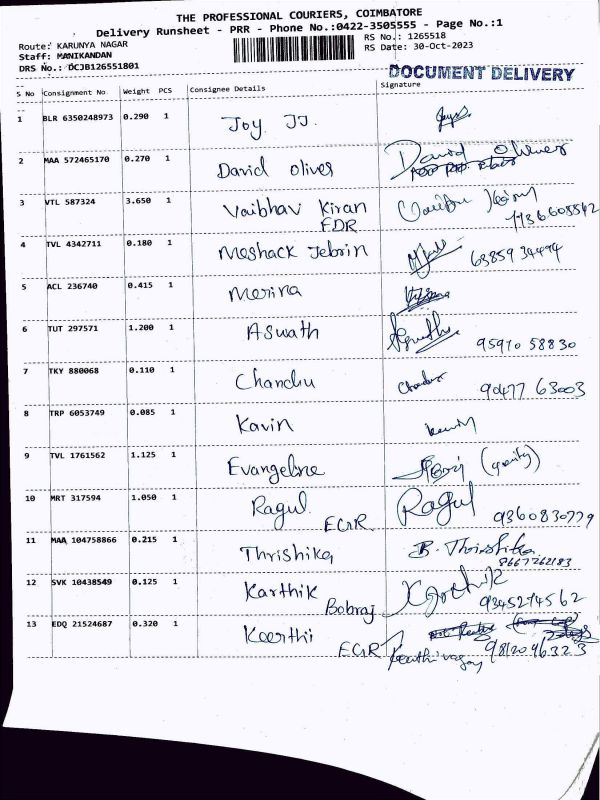 THE PROFESSIONAL COURIERS, COIMBATORE
Delivery Runsheet - PRR - Phone No.:0422-3505555 - Page No.:1
Route: KARUNYA NAGAR
RS No.: 1265518
Staff: MANIKANDAN
RS Date: 30-Oct-2023
DRS No.: OCJB126551801
DOCUMENT DELIVERY
S No Consignment No. Weight PCS Consignee Details Signature
1 BLR 6350248973 0.290 1 Joy JJ.
2 MAA 572465170 0.270 1 David oliver David Oliver
3 VTL 587324 3.650 1 Vaibhav Kiran
FDR
4 TVL 4342711 0.180 1 Meshack Jebrin 63859 34494
5 ACL 236740 0.415 1 Merina
6 TUT 297571 1.200 1 Aswath
95910 58830
7 TKY 880068 0.110 1 Chandu 90477 63003
8 TRP 6053749 0.085 1 Kavin
9 TVL 1761562 1.125 1 Evangeline
10 MRT 317594 1.050 1 Ragul Ragul
EGR 9360830779
11 MAA 104758866 0.215 1 Thrishika B. Thrishika
8667262183
12 SVK 10438549 0.125 1 Karthik Karthik
Bobraj 9345274562
13 EDQ 21524687 0.320 1 Keerthi
EGR 9812096323